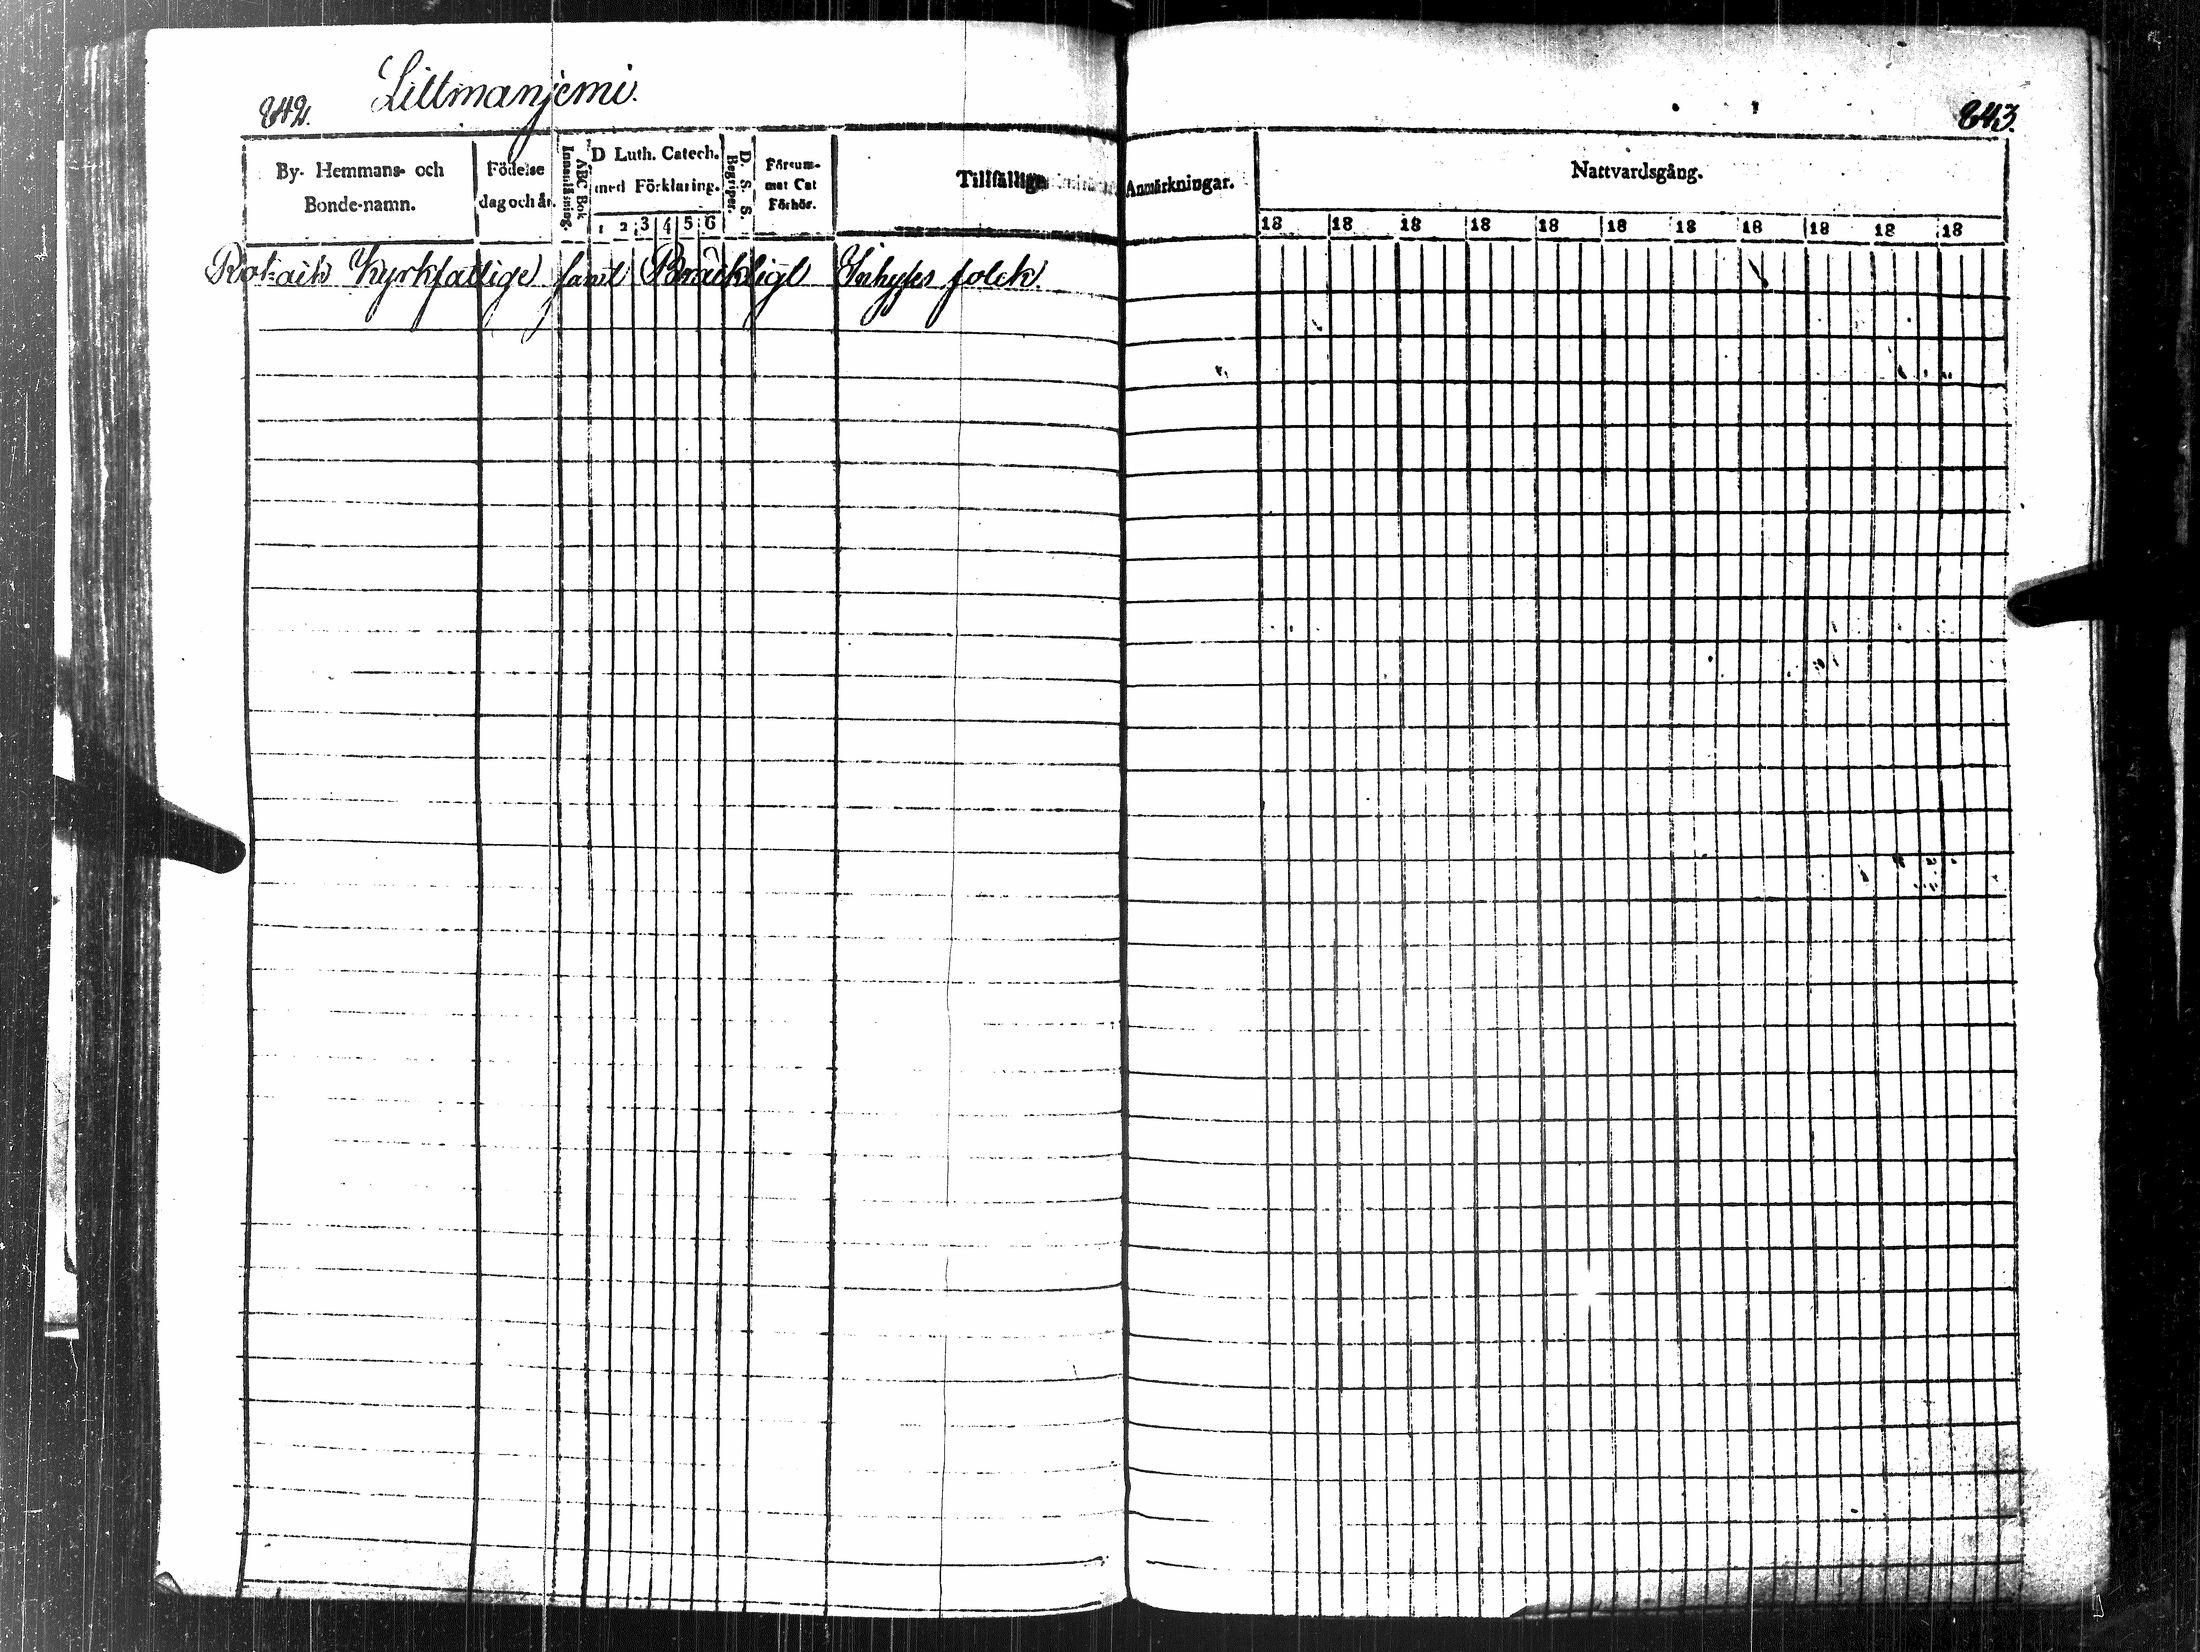 842. Littmanjemi. 843.
By- Hemmans- och
Bonde-namn.
Födelse
dag och år.
ABC Bok
Innanläsning.
D Luth. Catech.
med Förklaring.
1 2 3 4 5 6
D. S. S.
Begriper.
Försum-
mat Cat
Förhör.
Tillfällige Anmärkningar.
Nattvardsgång.
18 18 18 18 18 18 18 18 18 18 18
Kyrkfattige samt Bräckligt Inhyses folck.